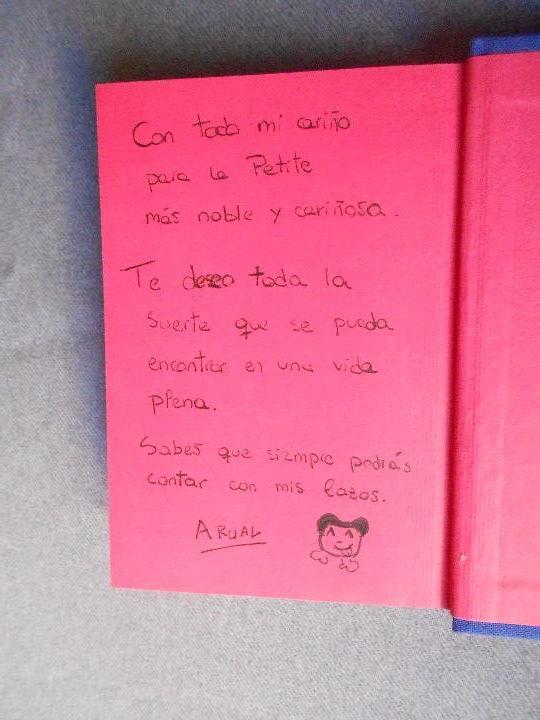 Con todo mi cariño
para la Petite
más noble y cariñosa.
Te deseo toda la
suerte que se pueda
encontrar en una vida
plena.
Sabes que siempre podrás
contar con mis lazos.
ARUAL